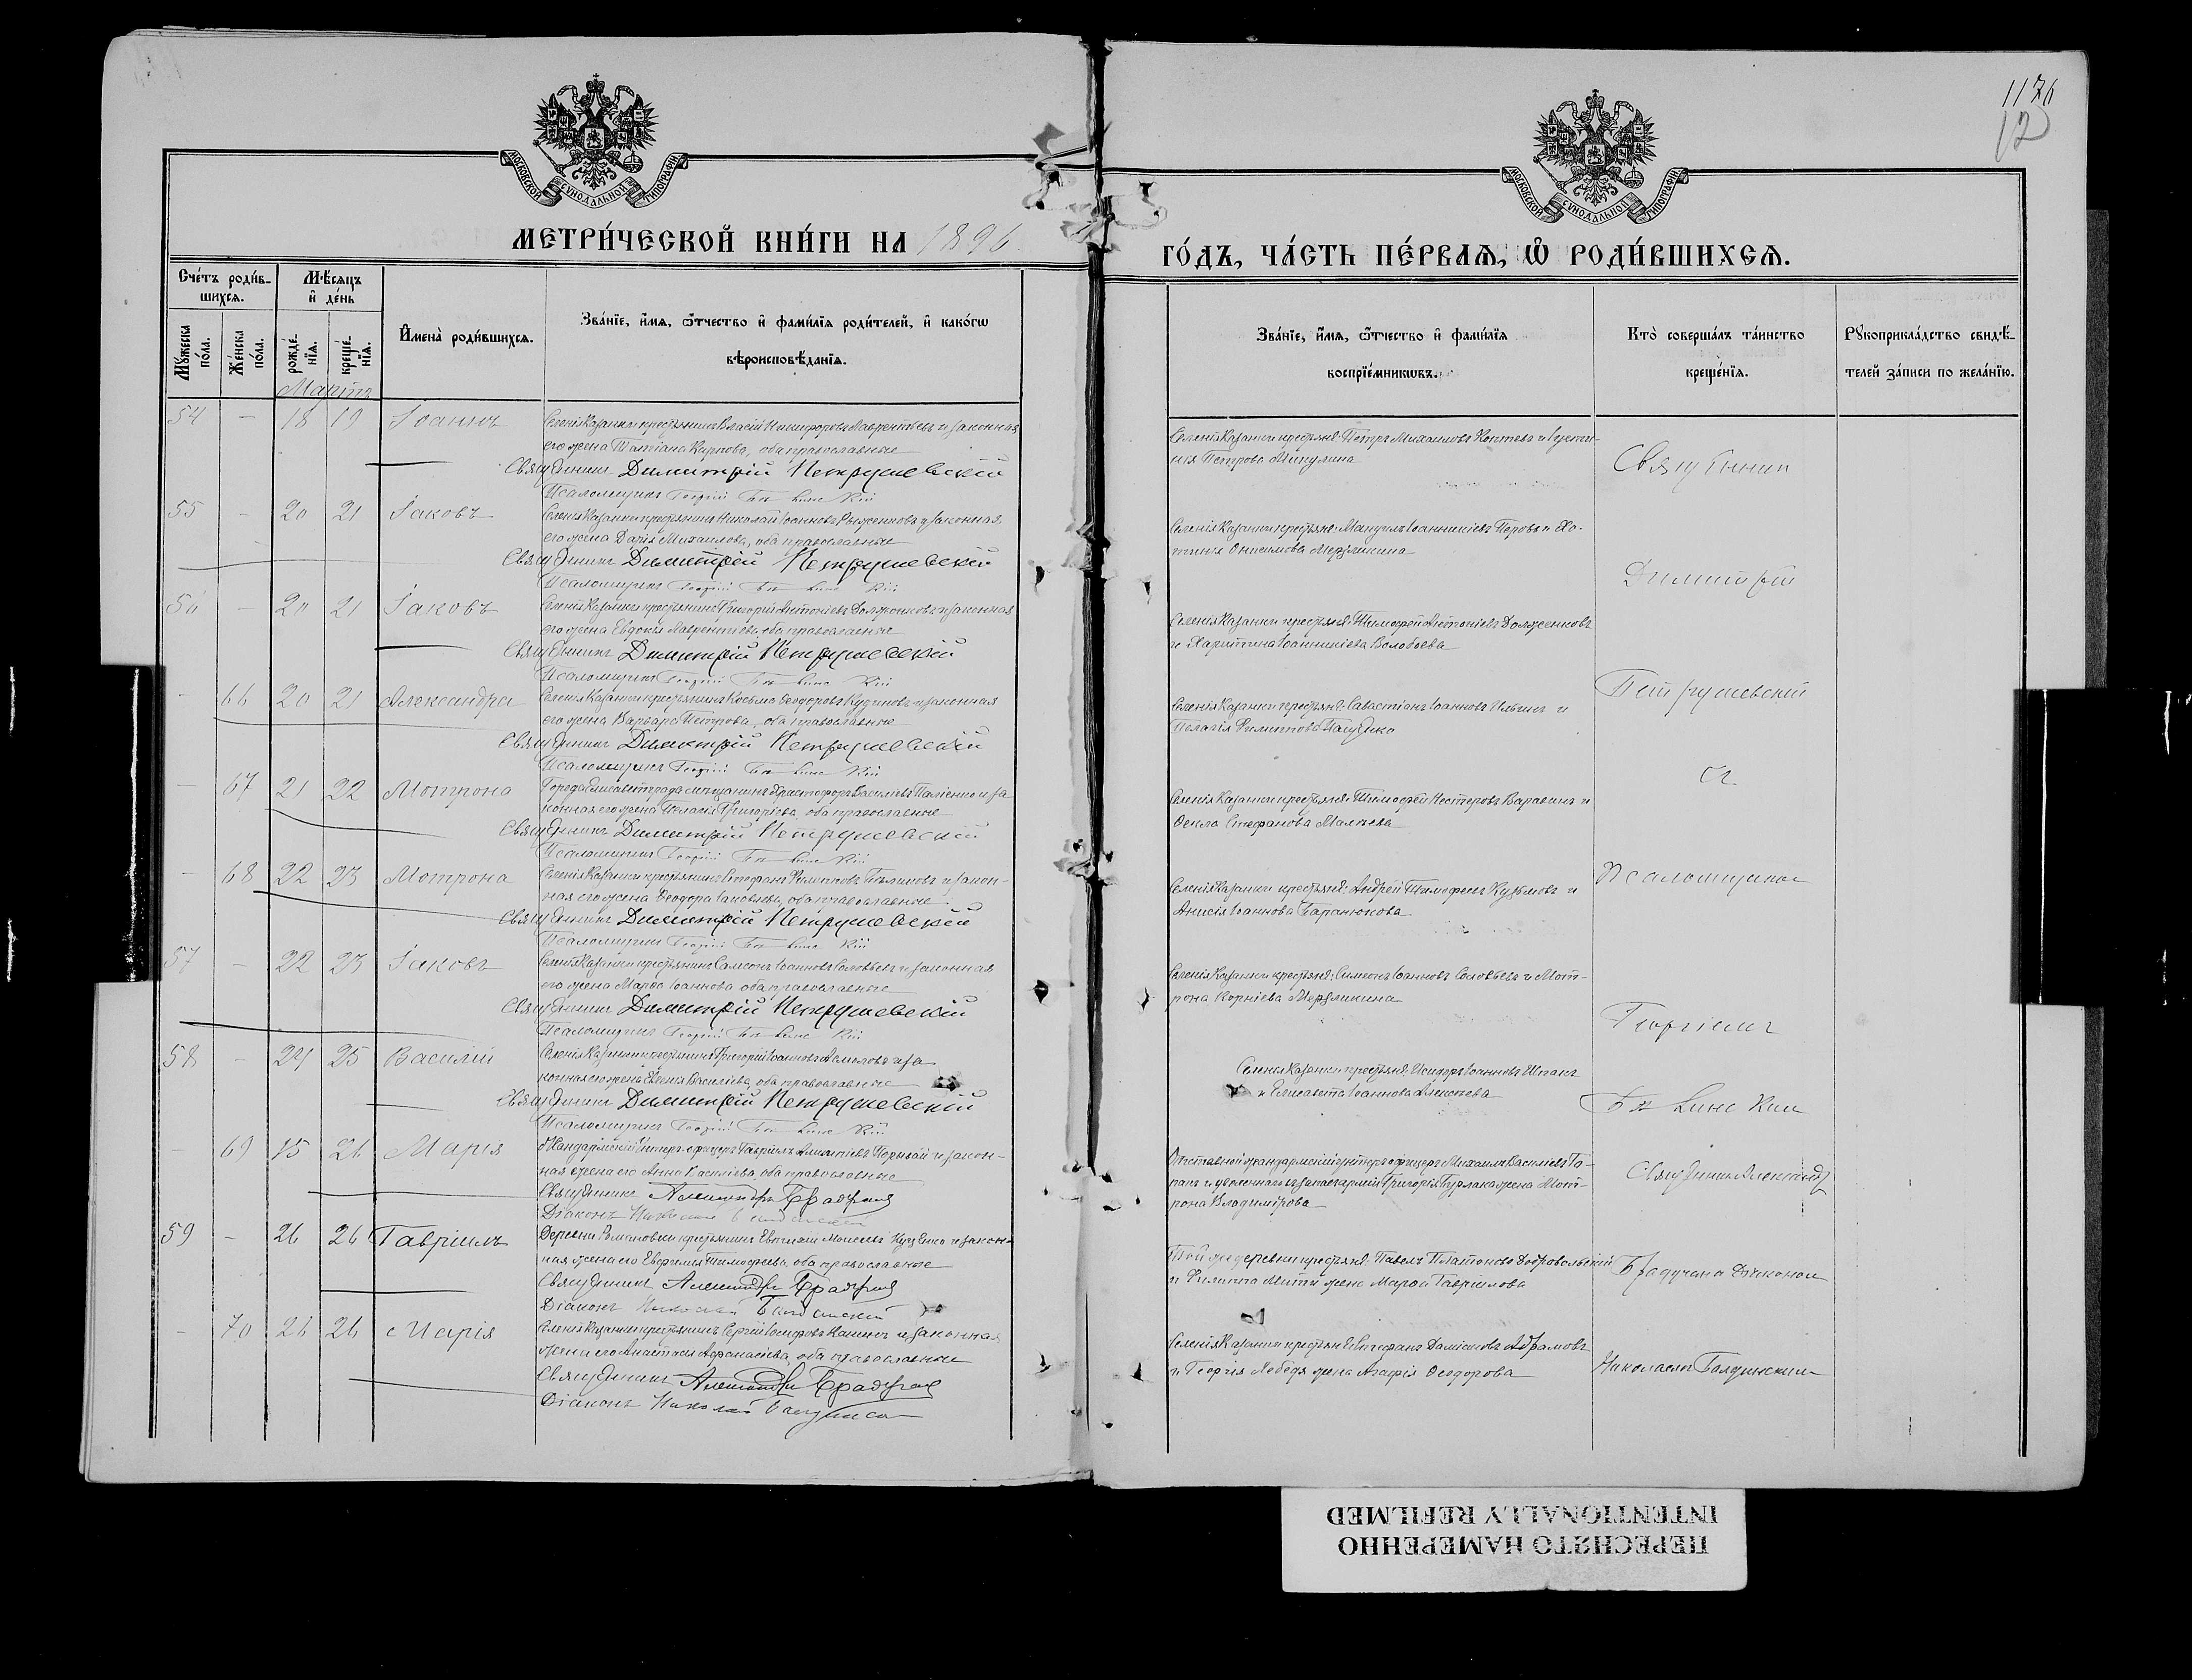 1176
12
МОСКОВСКОЙ СѴНОДАЛЬНОЙ ТИПОГРАФІИ
МОСКОВСКОЙ СѴНОДАЛЬНОЙ ТИПОГРАФІИ
МЕТРИ́ЧЕСКОЙ КНИ́ГИ НА 1896
ГО́ДЪ, ЧА́СТЬ ПЕ́РВАѦ, Ѡ҆ РОДИ́ВШИХСѦ.
Сче́тъ роди́в-
шихсѧ.
Мꙋжеска по́ла.
Же́нска по́ла.
Мѣ́сѧцъ
и҆ де́нь
рожде́-
нїѧ.
креще́-
нїѧ.
И҆мена̀ роди́вшихсѧ.
Зва́нїе, и҆́мѧ, ѻ҆́тчество и҆ фами́лїѧ роди́телей, и҆ како́гѡ
вѣроисповѣ́данїѧ.
Зва́нїе, и҆́мѧ, ѻ҆́тчество и҆ фами́лїѧ
воспрїе́мникѡвъ.
Кто̀ соверша́лъ та́инство
креще́нїѧ.
Рꙋкоприкла́дство свидѣ́-
телей за́писи по жела́нїю.
Мартъ
54 - 18 19 Іоаннъ Селенія Казанки крестьянинъ Власій Никифоровъ Лаврентьевъ и законная
его жена Татіана Карпова, оба православные
Священникъ Димитрій Петрушевскій
Псаломщикъ Георгій
Селенія Казанки крестьяне: Петръ Михаиловъ Коптевъ и Іусти-
нія Петрова Микулина
55 - 20 21 Іаковъ Селенія Казанки крестьянинъ Николай Іоанновъ Рыженковъ и законная
его жена Дарія Михаилова, оба православные
Священникъ Димитрій Петрушевскій
Псаломщикъ Георгій
Селенія Казанки крестьяне: Мануилъ Іоанникіевъ Поповъ и Хо-
тинія Онисимова Мерзликина
56 - 20 21 Іаковъ Селенія Казанки крестьянинъ Григорій Антоніевъ Долженковъ и законная
его жена Евдокія Лаврентіева, оба православные
Священникъ Димитрій Петрушевскій
Псаломщикъ Георгій
Селенія Казанки крестьяне: Тимофей Антоніевъ Долженковъ
и Харитина Іоанникіева Волобоева
- 66 20 21 Александра Селенія Казанки крестьянинъ Косьма Ѳеодоровъ Кудиновъ и законная
его жена Варвара Петрова, оба православные
Священникъ Димитрій Петрушевскій
Псаломщикъ Георгій
Селенія Казанки крестьяне: Савастіанъ Іоанновъ Ильинъ и
Пелагія Филиппова Пащенко
- 67 21 22 Мотрона Города Елисаветграда мѣщанинъ Христофоръ Василіевъ Паліенко и за
конная его жена Пелагія Григоріева, оба православные
Священникъ Димитрій Петрушевскій
Псаломщикъ Георгій
Селенія Казанки крестьяне: Тимофей Нестеровъ Варавинъ и
Ѳекла Стефанова Малѣева
- 68 22 23 Мотрона Селенія Казанки крестьянинъ Стефанъ Филипповъ Бѣликовъ и закон-
ная его жена Ѳеодора Іаковлева, оба православные
Священникъ Димитрій Петрушевскій
Псаломщикъ Георгій
Селенія Казанки крестьяне: Андрей Тимофеевъ Кузьмовъ и
Анисія Іоаннова Баранюкова
57 - 22 23 Іаковъ Селенія Казанки крестьянинъ Самсонъ Іоанновъ Соловьевъ и законная
его жена Марѳа Іоаннова оба православные
Священникъ Димитрій Петрушевскій
Псаломщикъ Георгій
Селенія Казанки крестьяне: Симеонъ Іоанновъ Соловьевъ и Мот-
рона Корніева Мерзликина
58 - 24 25 Василій Селенія Казанки крестьянинъ Григорій Іоанновъ и за
конная его жена Евгенія Василіева, оба православные
Священникъ Димитрій Петрушевскій
Псаломщикъ Георгій
Селенія Казанки крестьяне: Исидоръ Іоанновъ Шпакъ
и Елисавета Іоаннова Алексѣева
- 69 25 26 Марія Жандармскій унтеръ-офицеръ Гавріилъ и закон-
ная жена его Анна Василіева, оба православные
Священникъ Александръ Брадучанъ
Діаконъ Николай
Отставной жандармскій унтеръ офицеръ Михаилъ Василіевъ Га-
панъ и уволеннаго въ запасъ арміи Григорія Бурлака жена Мот-
рона Владимірова
59 - 26 26 Гавріилъ Деревни Романовки крестьянинъ Евѳимій Моисеевъ Куценко и закон-
ная жена его Евфимія Тимофеева, оба православные
Священникъ Александръ Брадучанъ
Діаконъ Николай
Той же деревни крестьяне: Павелъ Платоновъ Добровольскій
и Филиппа жена Марѳа Гавріилова
- 70 26 26 Марія Селенія Казанки крестьянинъ Сергій Іосифовъ и законная
жена его Анастасія Аѳанасіева, оба православные
Священникъ Александръ Брадучанъ
Діаконъ Николай
Селенія Казанки крестьяне: Стефанъ Даміановъ Абрамовъ
и Георгія Лебедя жена Агафія Ѳеодорова
Священникъ
Димитрій
Петрушевскій
съ
Псаломщикомъ
Георгіемъ
Священникъ Александръ
Брадучанъ съ Діакономъ
Николаемъ
ПЕРЕСНЯТО НАМЕРЕННО
INTENTIONALLY REFILMED